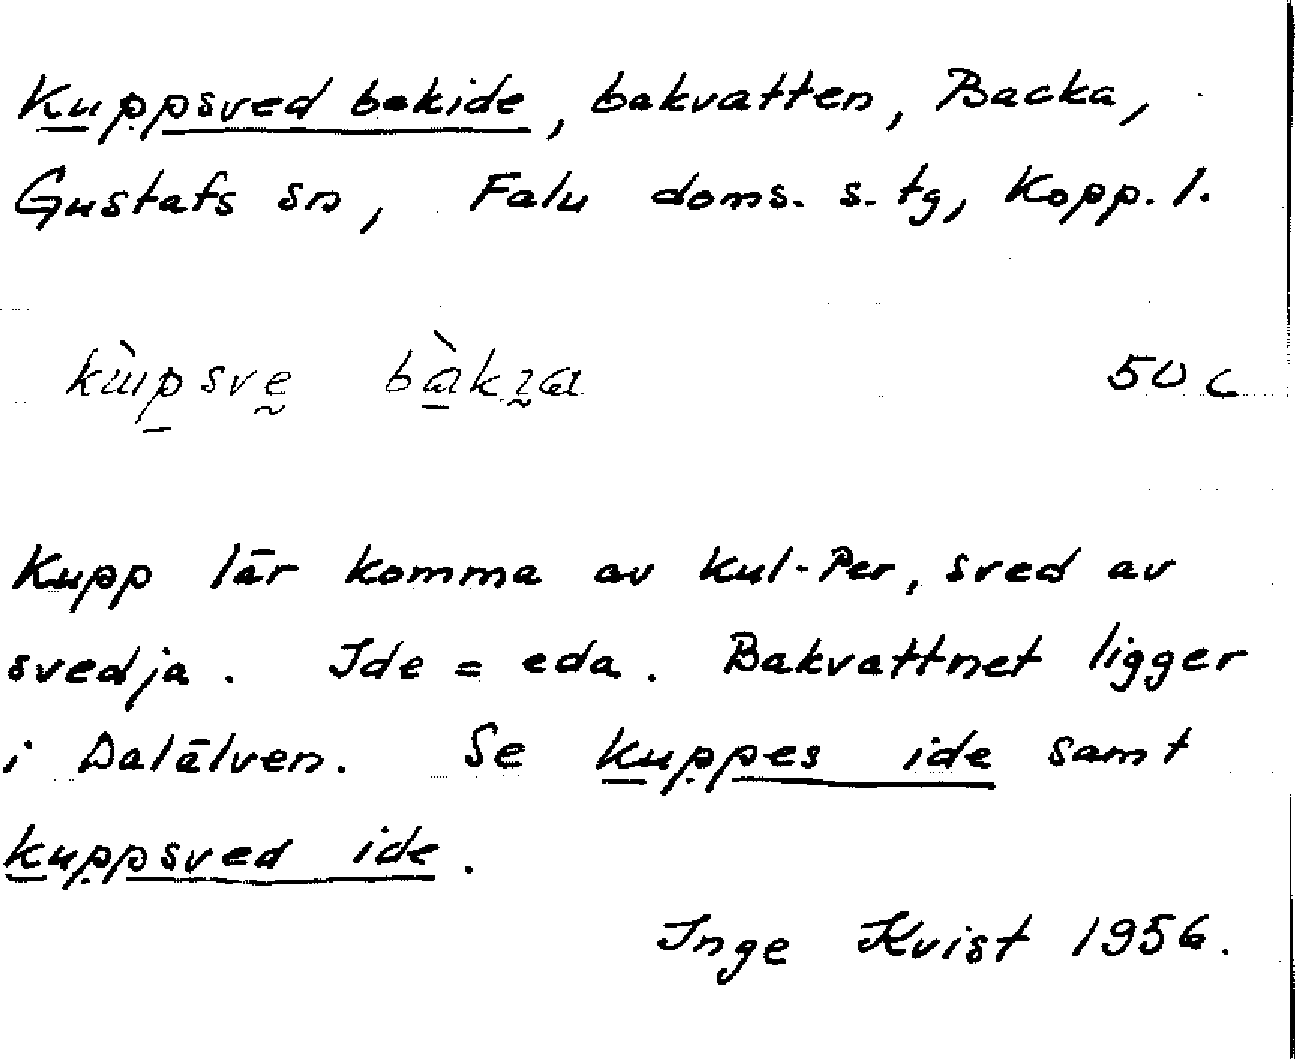 Kuppsved bakide, bakvatten, Backa,
Gustafs sn, Falu doms. s. tg, Kopp. l.
50 c
Kupp lär komma av Kul-Per, sved av
svedja. Ide = eda. Bakvattnet ligger
i Dalälven. Se kuppes ide samt
kuppsved ide.
Inge Kvist 1956.